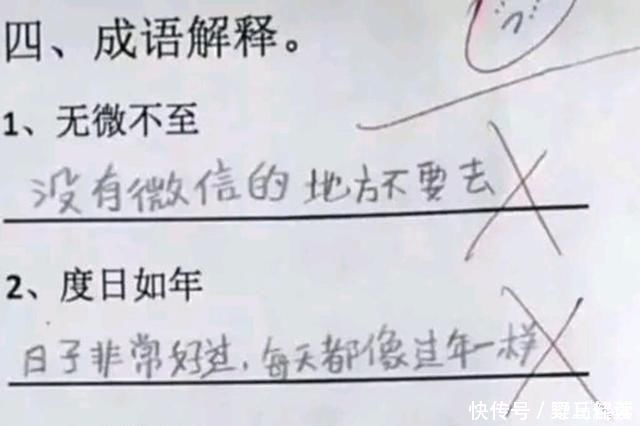 四、成语解释。
1、无微不至
没有微信的地方不要去
2、度日如年
日子非常好过,每天都像过年一样